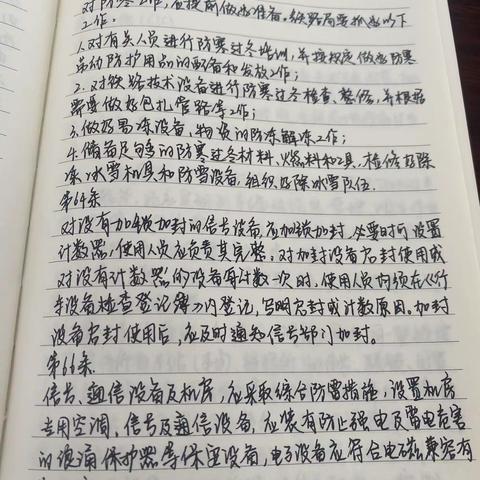 对防寒工作，应提前做好准备。铁路局要抓好以下
工作：
1.对有关人员进行防寒过冬培训，并按规定做好防寒
劳动防护用品的配备和发放工作；
2.对铁路技术设备进行防寒过冬检查、整修，并根据
需要做好包扎管路等工作；
3.做好易冻设备、物资的防冻解冻工作；
4.储备足够的防寒过冬材料、燃料和工具，检修好除
冻、冰雪机具和防雪设备，组织好除冰雪队伍.
第64条
对设有加锁加封的信号设备，应加锁加封，必要时可设置
计数器，使用人员应负责其完整。对加封设备启封使用或
对设有计数器的设备每计数一次时，使用人员均须在《行
车设备检查登记簿》内登记，写明启封或计数原因。加封
设备启封使用后，应及时通知信号部门加封。
第66条
信号、通信设备及机房，应采取综合防雷措施，设置机房
专用空调。信号及通信设备，应装有防止强电及雷电危害
的浪涌保护器等保安设备，电子设备应符合电磁兼容有